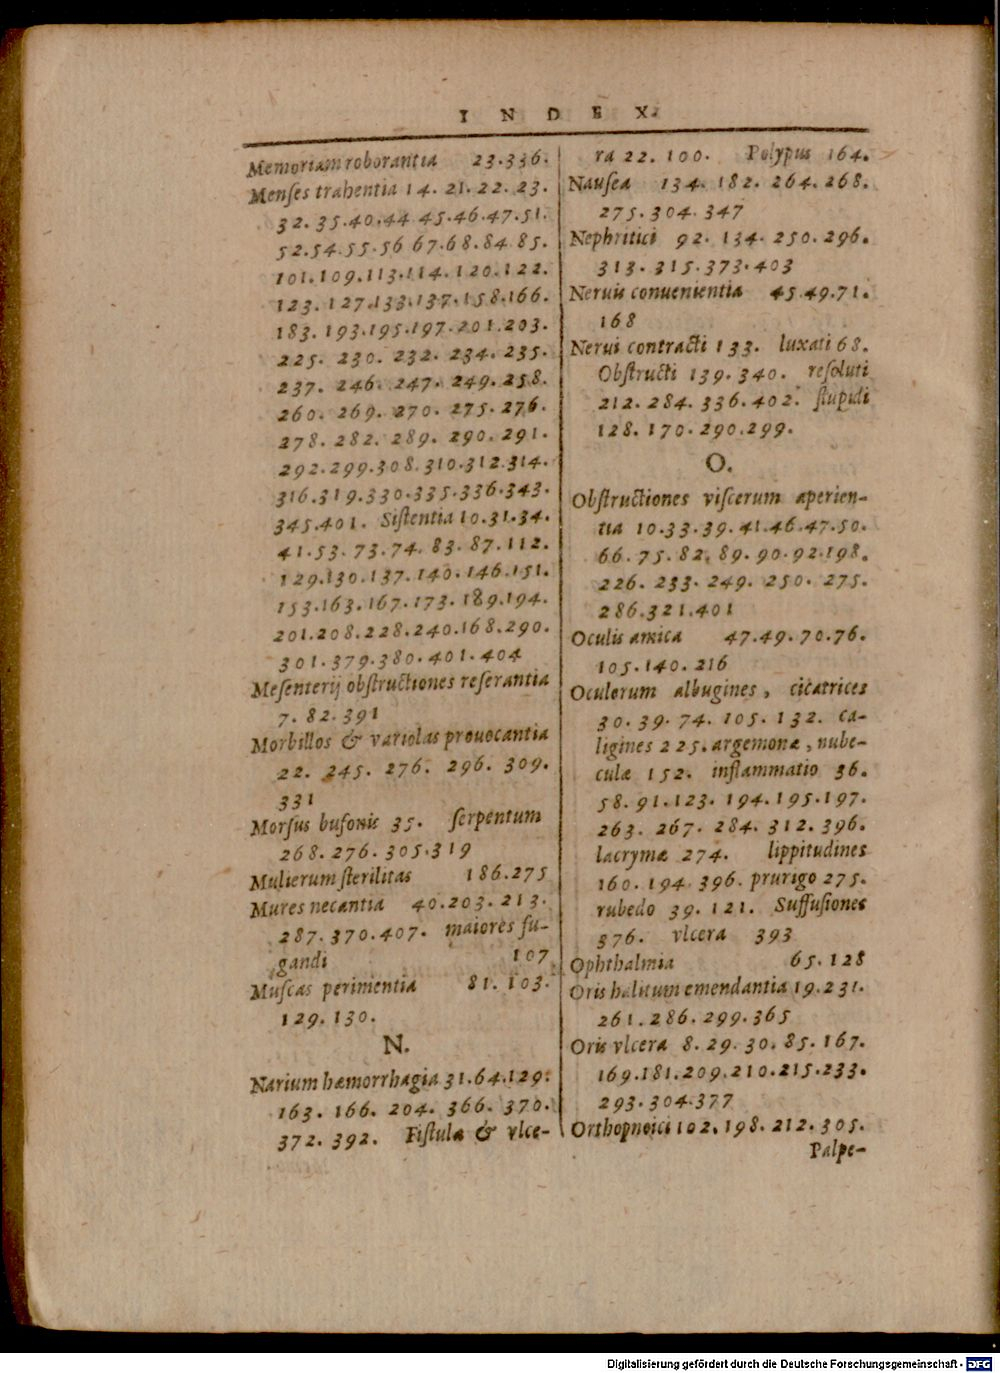 INDEX.
Memoriam roborantia 23.336.
Menſes trahentia 14. 21. 22. 23.
32. 35.40.44 45.46.47.51.
52.54.55.56 67.68.84 85.
101.109.113.114.120.122.
123. 127.133.137.158.166.
183. 193.195.197.201.203.
225. 230. 232. 234. 235.
237. 246. 247. 249. 258.
260. 269. 270. 275. 276.
278. 282. 289. 290. 291.
292.299.308.310.312.314.
316.319.330.335.336.343.
345.401. Siſtentia 10.31.34.
41.53.73.74. 83. 87.112.
129.130.137.140.146.151.
153.163.167.173.189.194.
201.208.228.240.168.290.
301.379.380.401.404
Meſenterij obſtructiones reſerantia
7. 82. 391
Morbillos & variolas prouocantia
22. 245. 276. 296. 309.
331
Morſus bufonis 35. ſerpentum
268. 276. 305.319
Mulierum ſterilitas 186.275
Mures necantia 40.203. 213.
287.370.407. maiores fu-
gandi 107
Muſcas perimentia 81. 103.
129. 130.
N.
Narium hæmorrhagia 31.64.129.
163. 166. 204. 366. 370.
372. 392. Fiſtulæ & vlce-
ra 22. 100. Polypus 164.
Nauſea 134. 182. 264. 268.
275. 304. 347
Nephritici 92. 134. 250. 296.
313. 315.373.403
Neruis conuenientia 45.49.71.
168
Nerui contracti 133. luxati 68.
Obſtructi 139. 340. reſoluti
212. 284. 336. 402. ſtupidi
128. 170. 290.299.
O.
Obſtructiones viſcerum aperien-
tia 10.33.39.41.46.47.50.
66.75.82.89.90.92.198.
226. 233. 249. 250. 275.
286.321.401
Oculis amica 47.49.70.76.
105.140. 216
Oculorum albugines, cicatrices
30. 39. 74. 105. 132. ca-
ligines 225. argemonæ, nube-
culæ 152. inflammatio 36.
58. 91.123. 194.195.197.
263. 267. 284. 312. 396.
lacrymæ 274. lippitudines
160. 194. 396. prurigo 275.
rubedo 39. 121. Suffuſiones
376. vlcera 393
Ophthalmia 65. 128
Oris halitum emendantia 19.231.
261.286.299.365
Oris vlcera 8. 29. 30. 85. 167.
169.181.209.210.215.233.
293.304.377
Orthopnoici 102. 198. 212. 305.
Palpe-
Digitalisierung gefördert durch die Deutsche Forschungsgemeinschaft - DFG